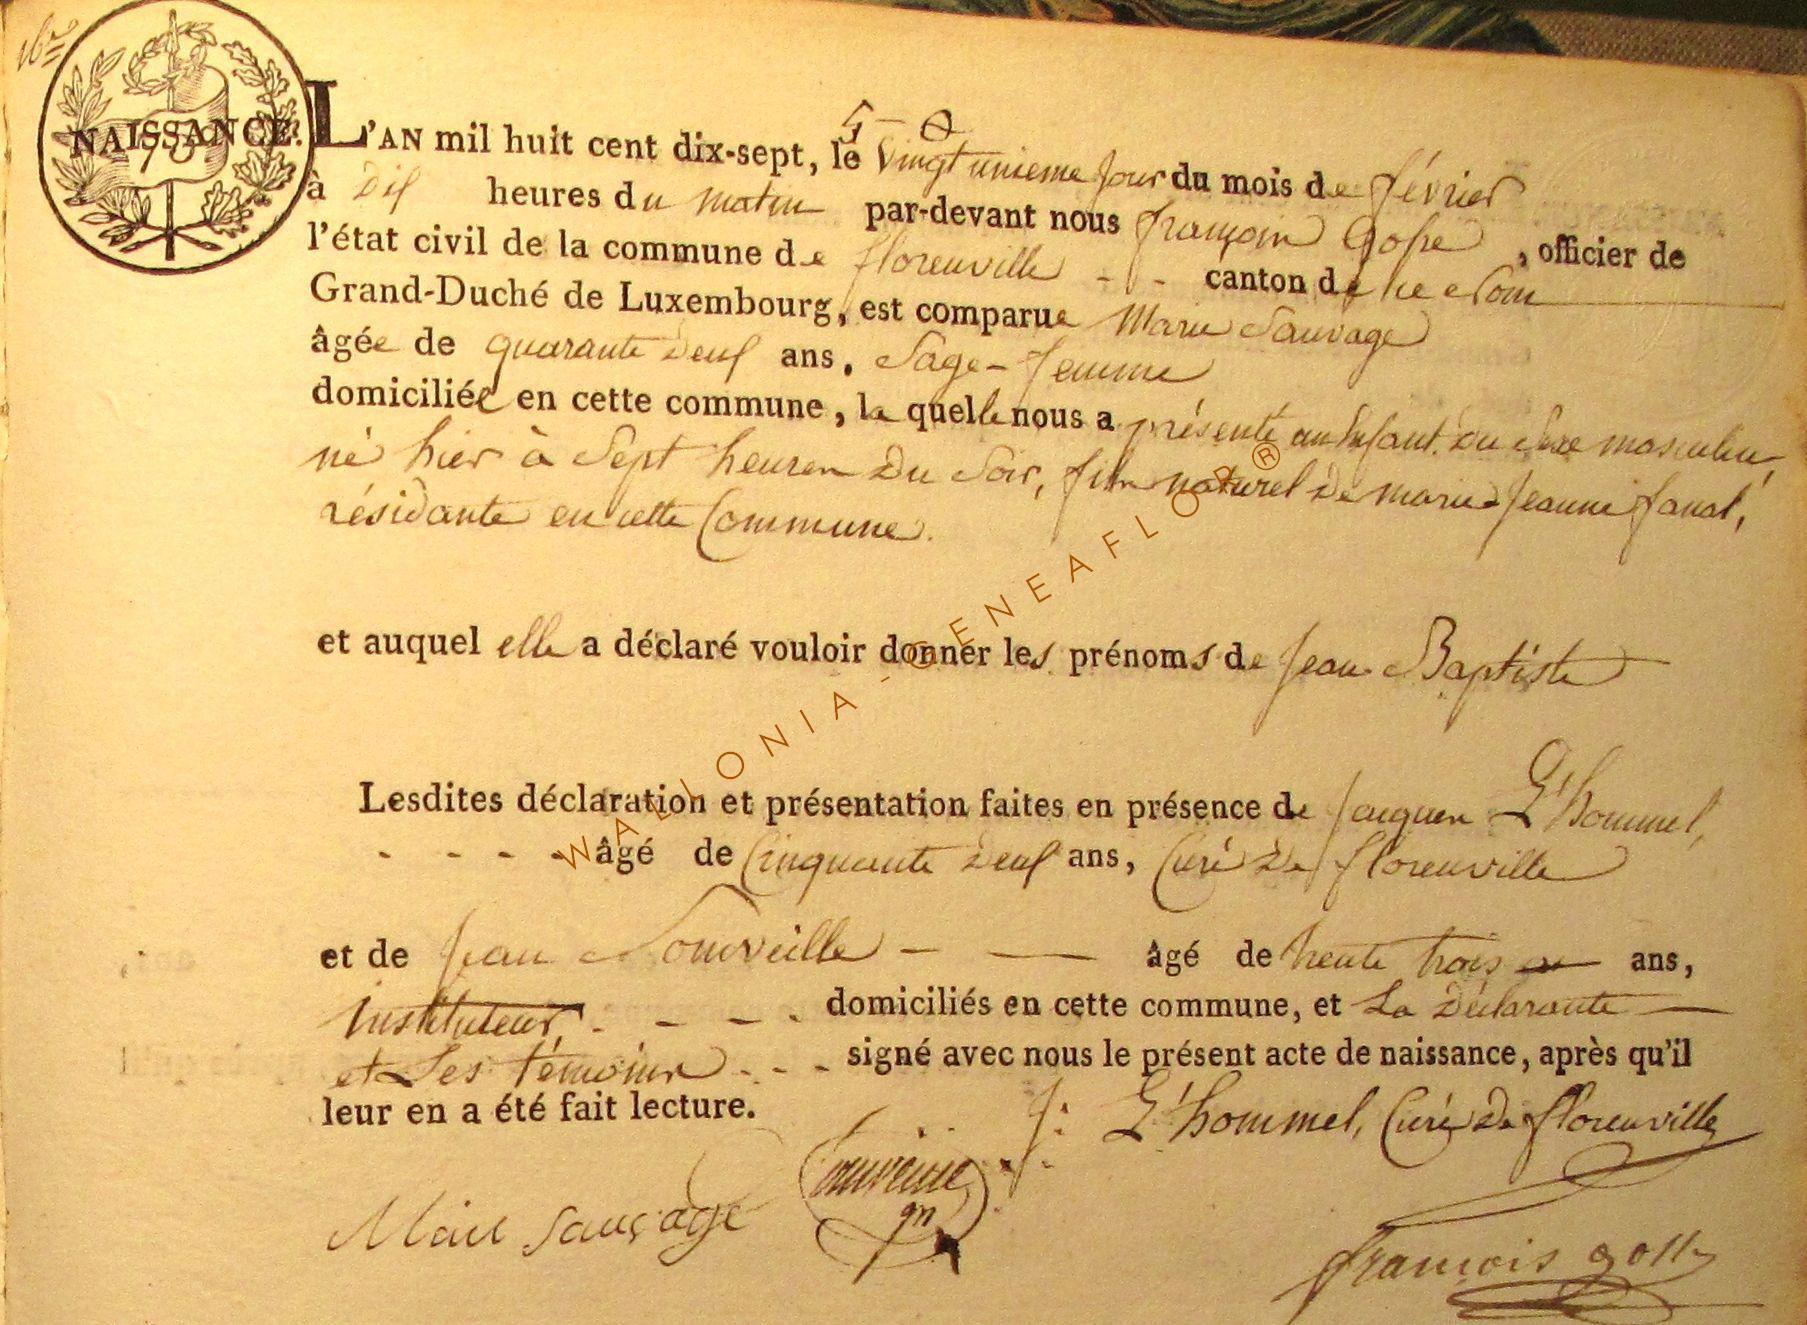 NAISSANCE.
L'AN mil huit cent dix-sept, le vingt unieme jour du mois de février
à dix heures du matin par-devant nous françois Gosse, officier de
l'état civil de la commune de florenville - - canton de
Grand-Duché de Luxembourg, est comparue Marie Sauvage
âgée de quarante deux ans, Sage-femme
domiciliée en cette commune, la quelle nous a présenté un Enfant du Sexe masculin,
né hier à Sept heures du Soir, fils naturel de marie Jeanne fanal,
résidante en cette Commune.
et auquel elle a déclaré vouloir donner les prénoms de Jean Baptiste
Lesdites déclaration et présentation faites en présence de Jacques L'hommel,
- - - - âgé de Cinquante deux ans, Curé de florenville
et de Jean - - âgé de trente trois ans,
Instituteur, - - - - domiciliés en cette commune, et La Déclarante
et Les témoins - - - signé avec nous le présent acte de naissance, après qu'il
leur en a été fait lecture.
J: L'hommel, Curé de florenville
Marie Sauvage
françois gosse
WALLONIA-GENEAFLOR®